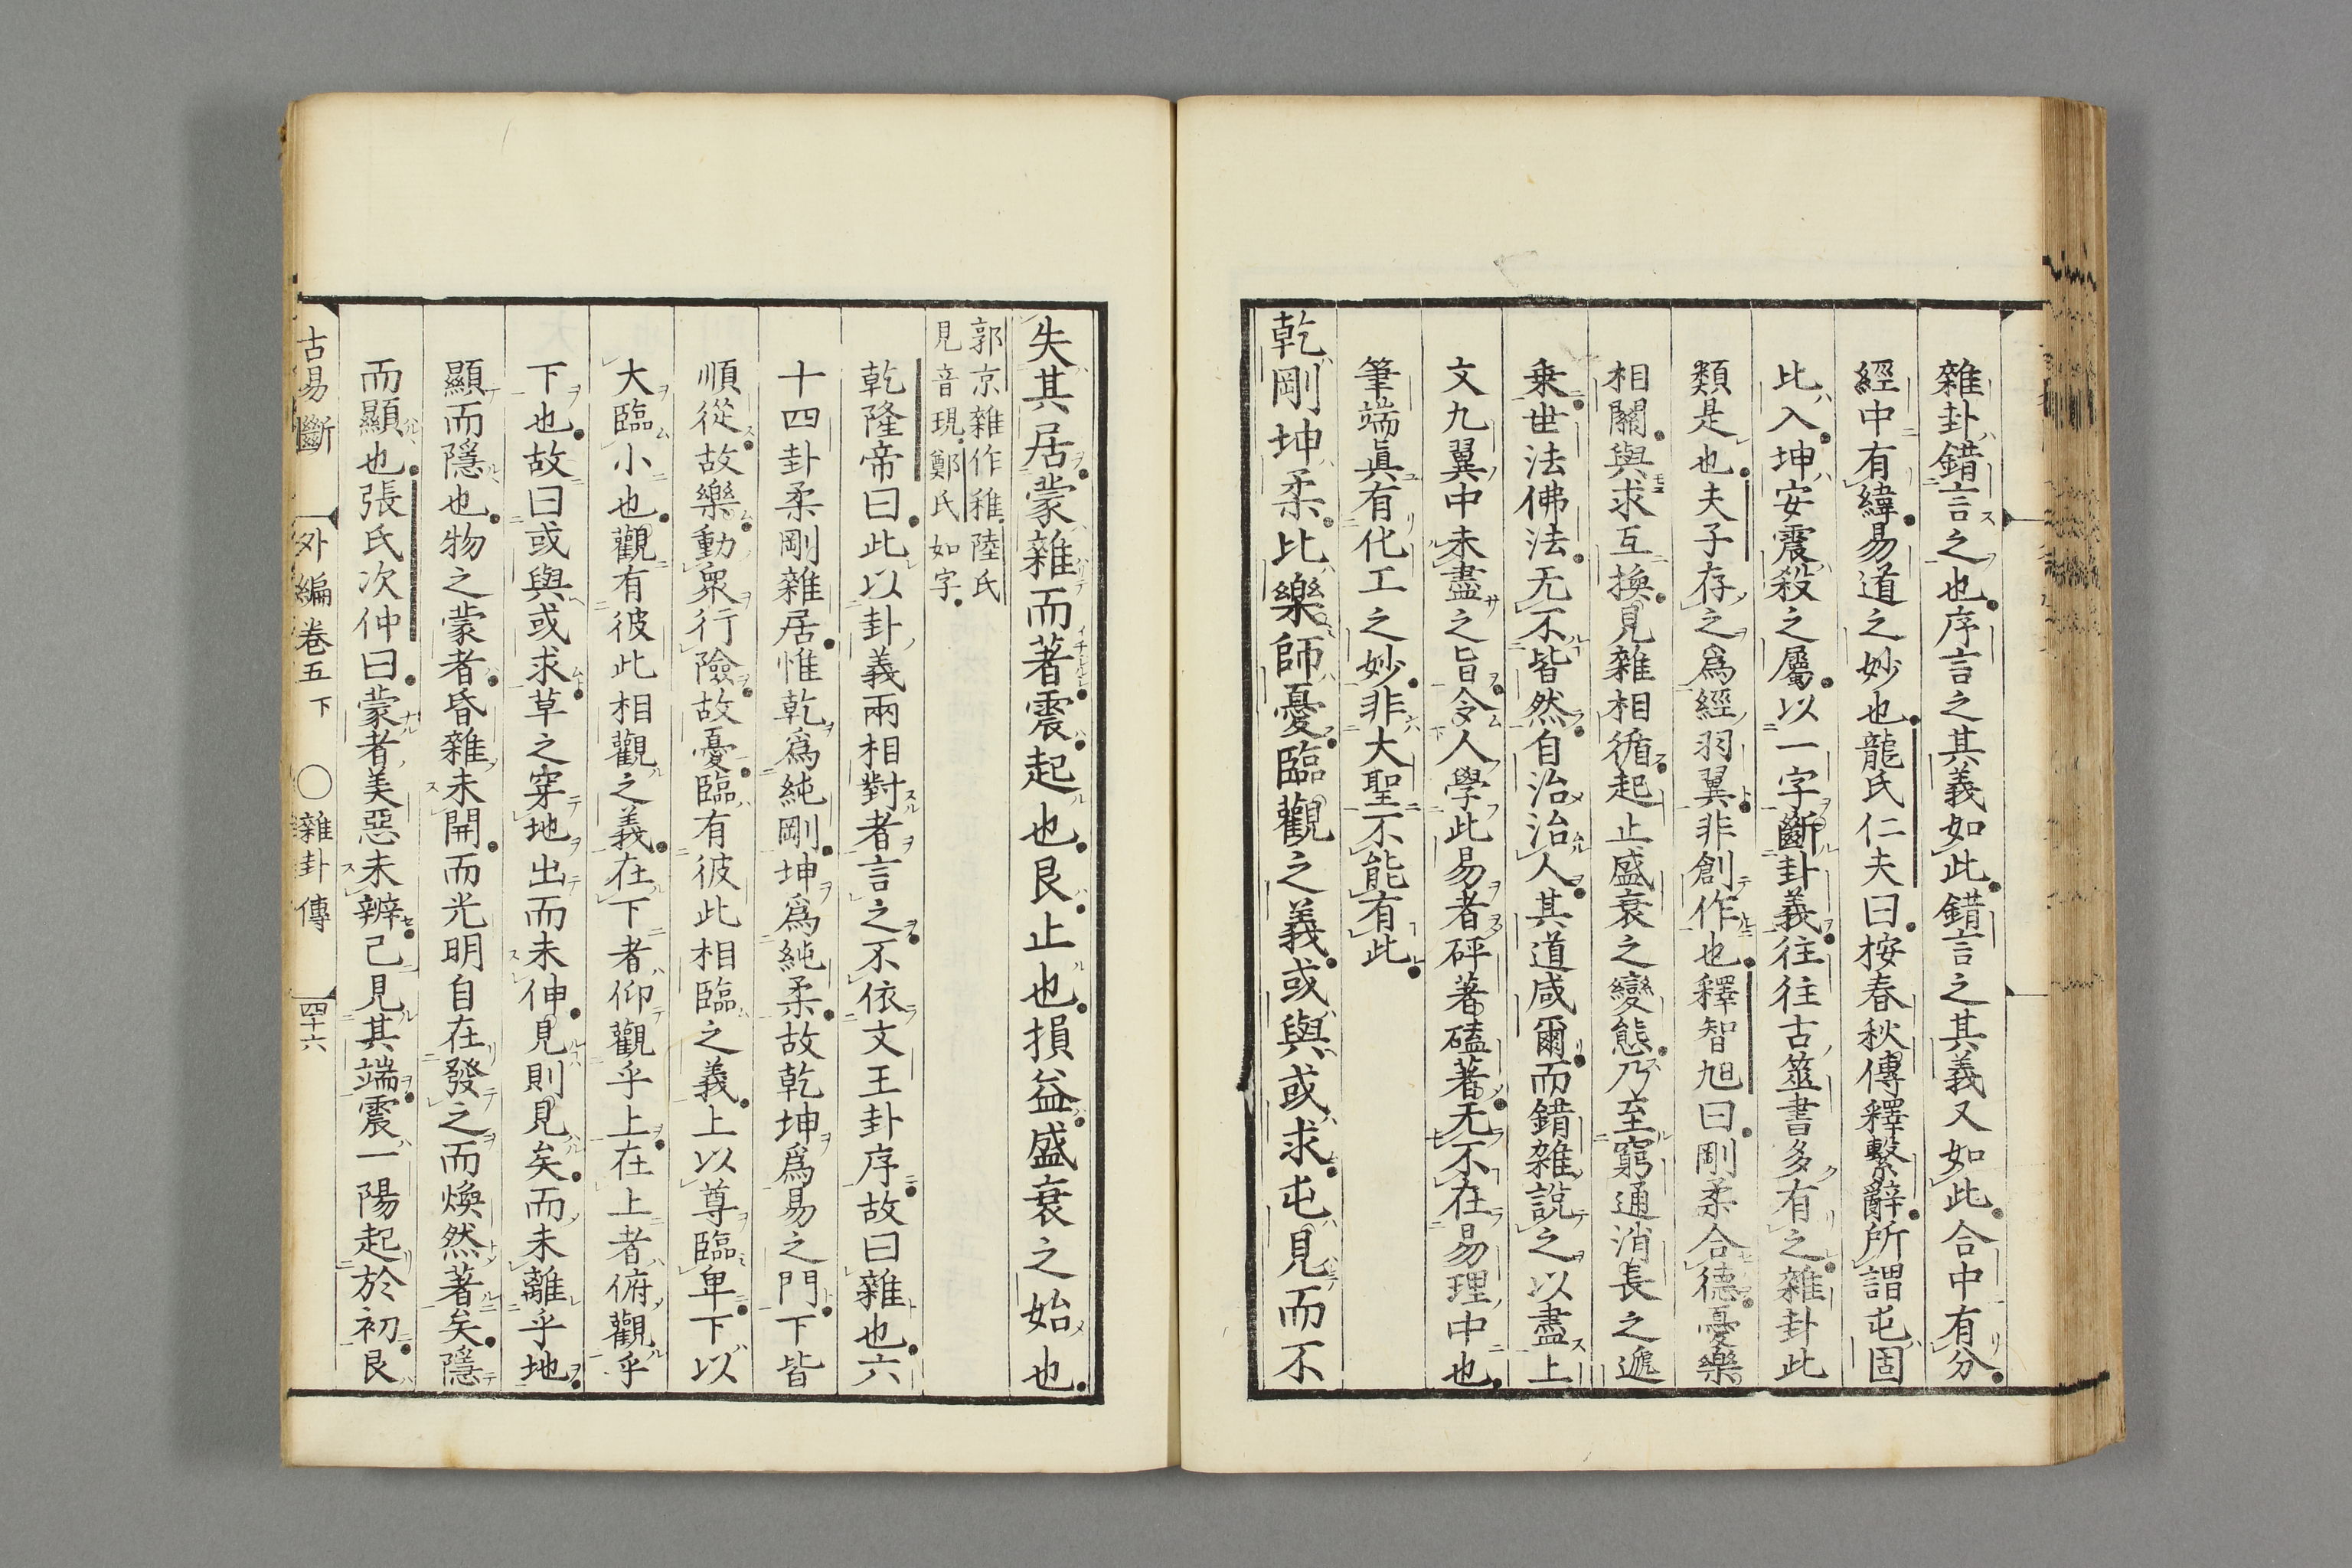 雜卦錯言之也序言之其義如此錯言之其義又如此合中有分
經中有緯易道之妙也龍氏仁夫曰按春秋傳釋繫辭所謂屯固
比入坤安震殺之屬以一字斷卦義往往古筮書多有之雜卦此
類是也夫子存之爲經羽翼非創作也釋智旭曰剛柔合德憂樂
相關與求互換見雜相循起止盛衰之變態乃至窮通消長之遞
乗世法佛法无不皆然自治治人其道咸爾而錯雑說之以盡上
文九翼中未盡之旨令人學此易者砰著磕著无不在易理中也
筆端眞有化工之妙非大聖不能有此
乾剛坤柔比樂師憂臨觀之義或與或求屯見而不
失其居蒙雜而著震起也艮止也損益盛衰之始也
郭京雜作稚陸氏
見音現鄭氏如字
乾隆帝曰此以卦義兩相對者言之不依文王卦序故曰雜也六
十四卦柔剛雜居惟乾爲純剛坤爲純柔故乾坤爲易之門下皆
順從故樂動衆行險故憂臨有彼此相臨之義上以尊臨卑下以
大臨小也觀有彼此相觀之義在下者仰觀乎上在上者俯觀乎
下也故曰或與或求草之穿地出而未伸見則見矣而未離乎地
顯而隱也物之蒙者昏雜未開而光明自在發之而煥然著矣隱
而顯也張氏次仲曰蒙者美惡未辨已見其端震一陽起於初艮
古易斷 外編卷五下 〇雜卦傳 四十六